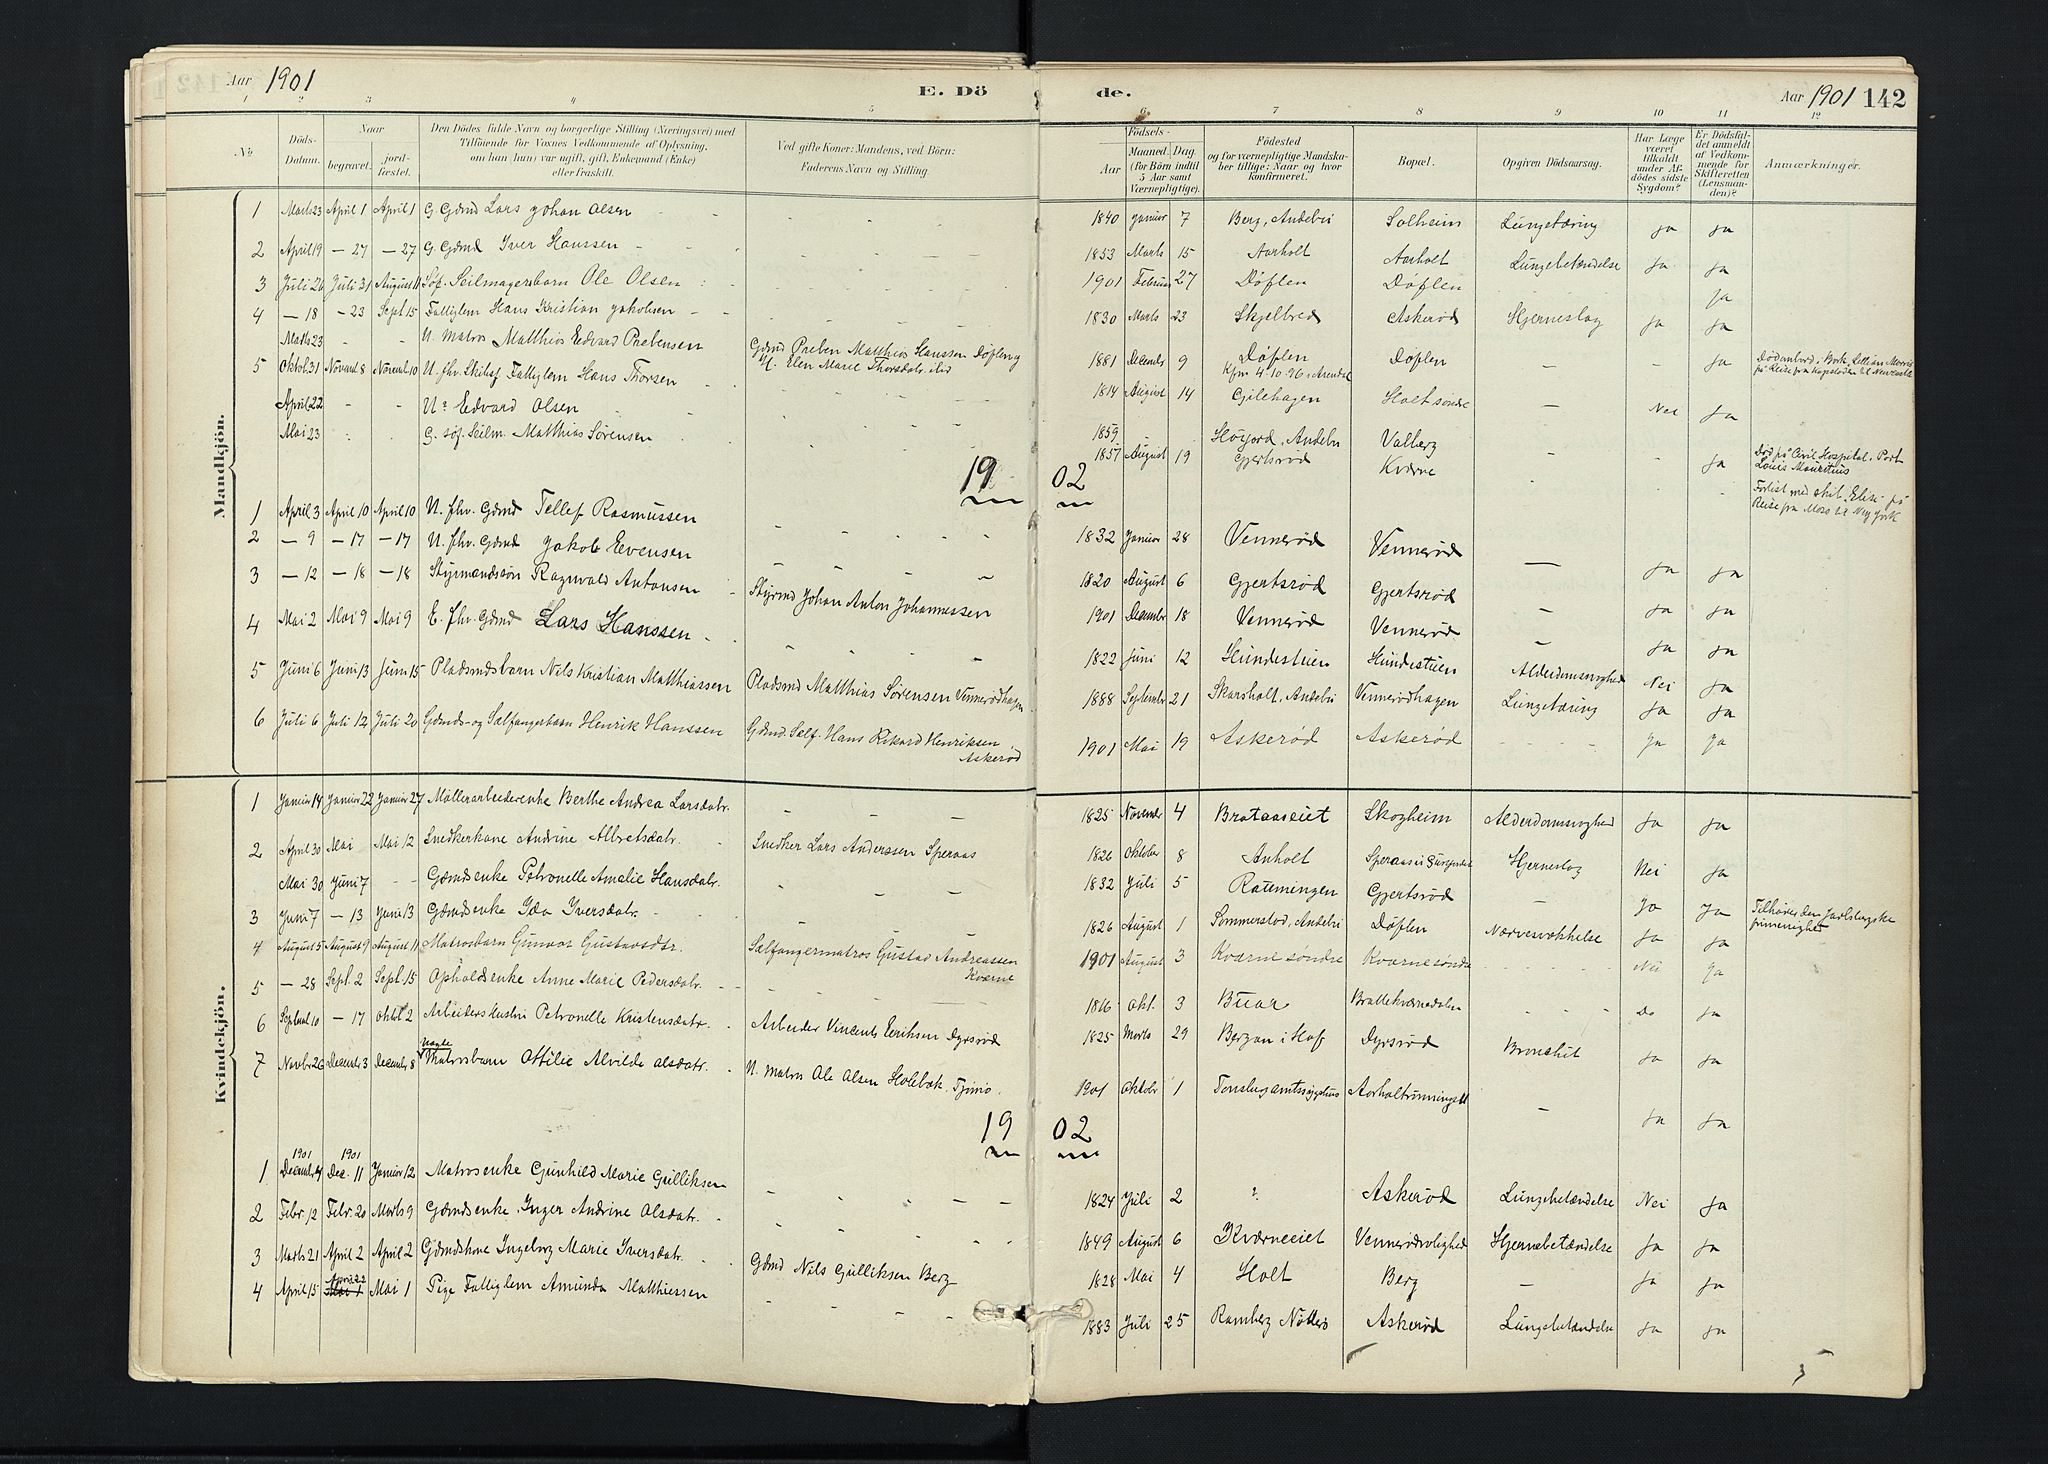 Aar 1901 E. Dö de. Aar 1901 142
1 2 3 4 5 6 7 8 9 10 11 12
№ Döds-Datum. Naar begravet. jord-fæstet. Den Dödes fulde Navn og borgerlige Stilling (Næringsvei) med Tilföiende for Voxnes Vedkommende af Oplysning, om han (hun) var ugift, gift, Enkemand (Enke) eller fraskilt. Ved gifte Koner: Mandens, ved Börn: Faderens Navn og Stilling. Födsels- Aar Maaned. Dag. (for Börn indtil 5 Aar samt Værnepligtige). Födested og for værnepligtige Mandskaber tillige: Naar og hvor konfirmeret. Bopæl. Opgiven Dödsaarsag. Har Læge været tilkaldt under Afdödes sidste Sygdom? Er Dödsfaldet anmeldt af Vedkommende for Skifteretten (Lensmanden)? Anmærkninger.
Mandkjön.
1 Marts 23 April 1 April 1 G. Gdmd Lars Johan Olsen 1840 Januar 7 Berg, Andebu Solheim Lungetæring Ja Ja
2 April 19 — 27 — 27 G. Gdmd Iver Hanssen 1853 Marts 15 Aarholt Aarholt Lungebetændelse Ja Ja
3 Juli 26 Juli 31 August 11 Søf. Seilmagersbarn Ole Olsen 1901 Februar 27 Døflen Døflen Ja
4 — 18 — 23 Sept 15 Fattiglem Hans Kristian Jakobsen 1830 Marts 23 Skjelbred Askerød Hjerneslag Ja Ja
Marts 23 — U. Matros Matthias Edvard Prebensen Gdmd Preben Matthias Hanssen Døfleng U. Elen Marie Thorsdatr. 1881 December 9 Døflen Kfm 4.10.96 i Arendal Døflen — — Ja
5 Oktob. 31 Novemb 8 November 10 U. fhv. Skibsf. Fattiglem Hans Thorsen 1814 August 14 Gilehagen Holt søndre — Nei Ja
April 22 U. Edvard Olsen 1859 Høyord, Andebu Valberg
Mai 23 G. søf. Seilm. Matthias Sørensen 1857 August 19 Gjertsrød Kværne Ja
Død på Civil Hospital i Port Louis Mauritius
Forlist med skib "Elise" på Reise fra Moss til New York
1902
1 April 3 April 10 April 10 U. fhv. Gdmd Tellef Rasmussen 1832 Januar 28 Vennerød Vennerød — Ja Ja
2 — 9 — 17 — 17 U. fhv. Gdmd Jakob Evensen 1820 August 6 Gjertsrød Gjertsrød — Ja Ja
3 — 12 — 18 — 18 Styrmandssøn Ragnvald Antonsen Styrmd Johan Anton Johannessen 1901 December 18 Vennerød Vennerød — Ja Ja
4 Mai 2 Mai 9 Mai 9 E. fhv. Gdmd Lars Hanssen 1822 Juni 12 Hundestuen Hundestuen Alderdomssvaghed Nei Ja
5 Juni 6 Juni 13 Juni 15 Pladsmdsbarn Nils Kristian Matthiassen Pladsmd Matthias Sørensen Vennerødhagen 1888 September 21 Skarsholt, Andebu Vennerødhagen Lungetæring Ja Ja
6 Juli 6 Juli 12 Juli 20 Gdmds- og Sælfangerbarn Henrik Hanssen Gdmd. Self. Hans Rikard Henriksen Askerød 1901 Mai 19 Askerød Askerød Ja Ja
Kvindekjön.
1 Januar 14 Januar 22 Januar 27 Møllerarbeiderenke Berthe Andrea Larsdatr. 1825 November 4 Brataaseiet Skogheim Alderdomssvaghed Ja Ja
2 April 30 Mai Mai 12 Snedkerkone Andrine Albretsdatr. Snedker Lars Anderssen Speraas 1826 Oktober 8 Anholt Hjerneslag Nei Ja
Mai 30 Juni 7 Gdmdsenke Petronelle Amalie Hansdatr. 1832 Juli 5 Raumingen Gjertsrød — Ja Ja Tilhører den Jarlsbergske frimenighet
3 Juni 7 — 13 Juni 13 Gdmdsenke Ida Iversdatr. 1826 August 1 Sommerstad, Andebu Døflen Nervesvækkelse Ja Ja
4 August 5 August 9 August 11 Matrosbarn Gunvor Gustavsdtr. Sælfangermatros Gustav Andreassen Kværne 1901 August 3 Kværne søndre Kværne søndre Nei Ja
5 — 28 Sept. 2 Sept 15 Opholdsenke Anne Marie Pedersdatr. 1816 Okt. 3 Buar Brattekværnedalen Do Ja
6 Septemb 10 — 17 Oktb 2 Arbeiders Hustru Petronelle Kristensdatr. Arbeider Vincents Eriksen Dyrsrød 1825 Marts 29 Bergan i Hof Dyrsrød Bronchit Ja Ja
7 Novbr 26 December 3 December 8 Uægte Matrosbarn Ottilie Alvilde Olsdatr. U. Matros Ole Olsen Holebæk Tjømø. 1901 Oktobr 1 Tonsbergamtssygehus — Ja Ja
1902
1 1901 December 4 1901 Dec. 11 Januar 12 Matrosenke Gunhild Marie Gulliksen 1824 Juli 2 ? Askerød Lungebetændelse Nei Ja
2 Febr. 12 Febr. 20 Marts 9 Gdmdsenke Inger Andrine Olsdatr. 1849 August 6 Kværneeiet Vennerødvolighed Hjernebetændelse Ja Ja
3 Marts 21 April 2 April 2 Gdmdskone Ingeborg Marie Iversdatr. Gdmd Nils Gulliksen Berg 1828 Mai 4 Holt Berg — Ja Ja
4 April 15 April 22 Mai 1 Pige Fattiglem Amunda Matthiessen 1883 Juli 25 Ramberg Nøtterø Askerød Lungebetændelse Ja Ja